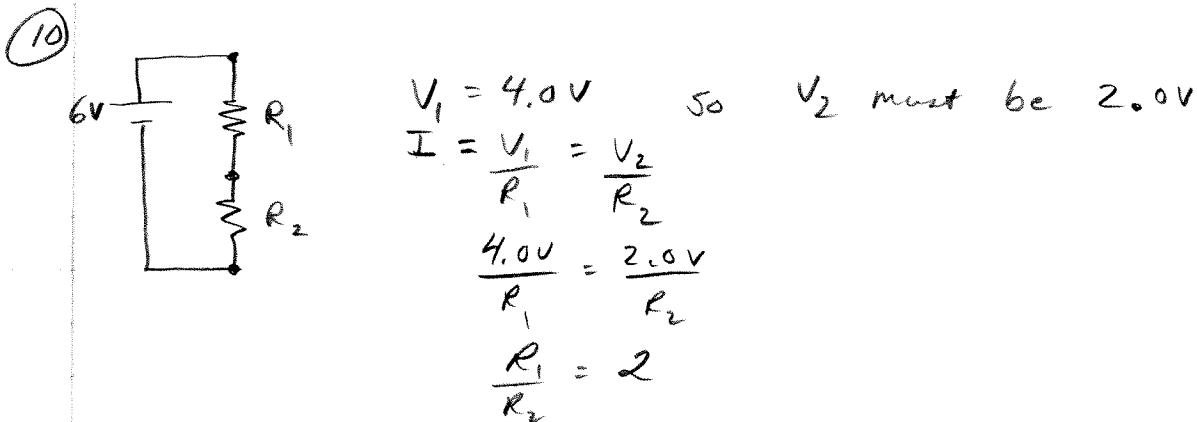 10
6V
R₁
R₂
V₁ = 4.0V so V₂ must be 2.0V
I = V₁/R₁ = V₂/R₂
4.0V/R₁ = 2.0V/R₂
R₁/R₂ = 2